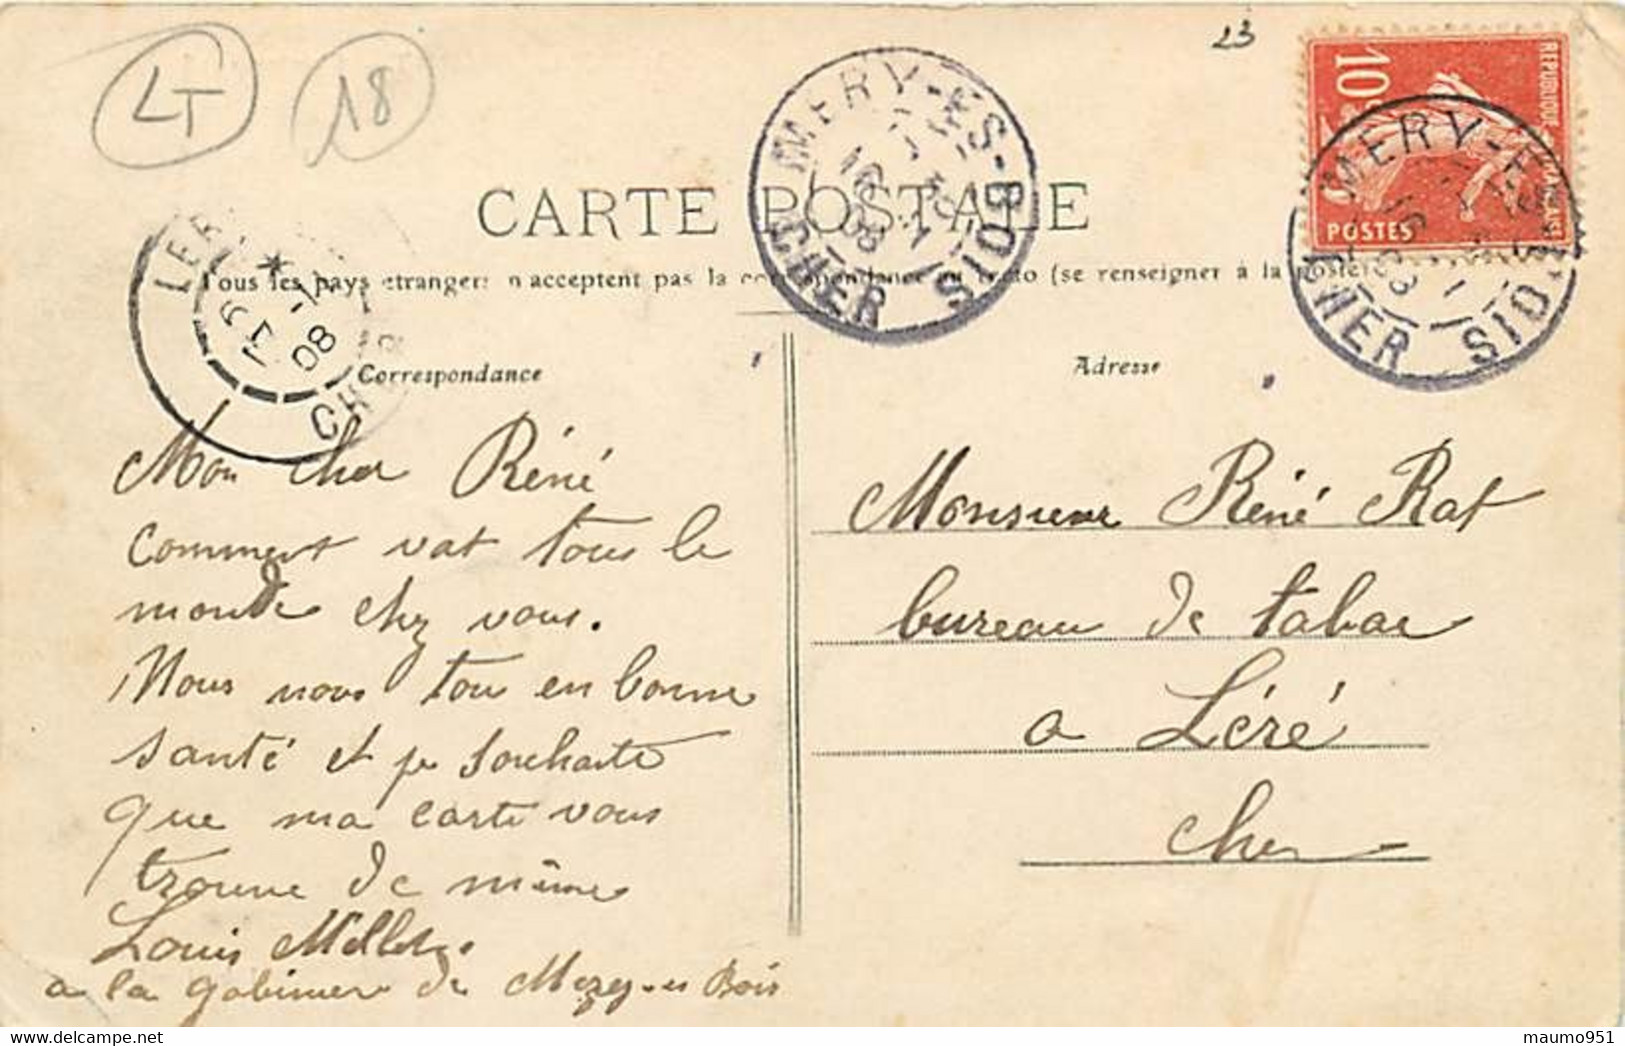 LT
18
23
RÉPUBLIQUE FRANÇAISE
10
POSTES
MERY-ES-BOIS
CHER
MERY-ES-BOIS
CHER
CARTE POSTALE
Tous les pays etrangers n'acceptent pas la correspondance au recto (se renseigner à la poste)
LERE
08
CHER
Correspondance
Adresse
Mon cher Réné
comment vat tous le
monde chez vous.
Nous nous tou en bonne
santé et je souhaite
que ma carte vous
trouve de même
Louis Millet
a la gabinier de Mery es Bois
Monsieur Réné Rat
bureau de tabac
a Léré
Cher
maumo951